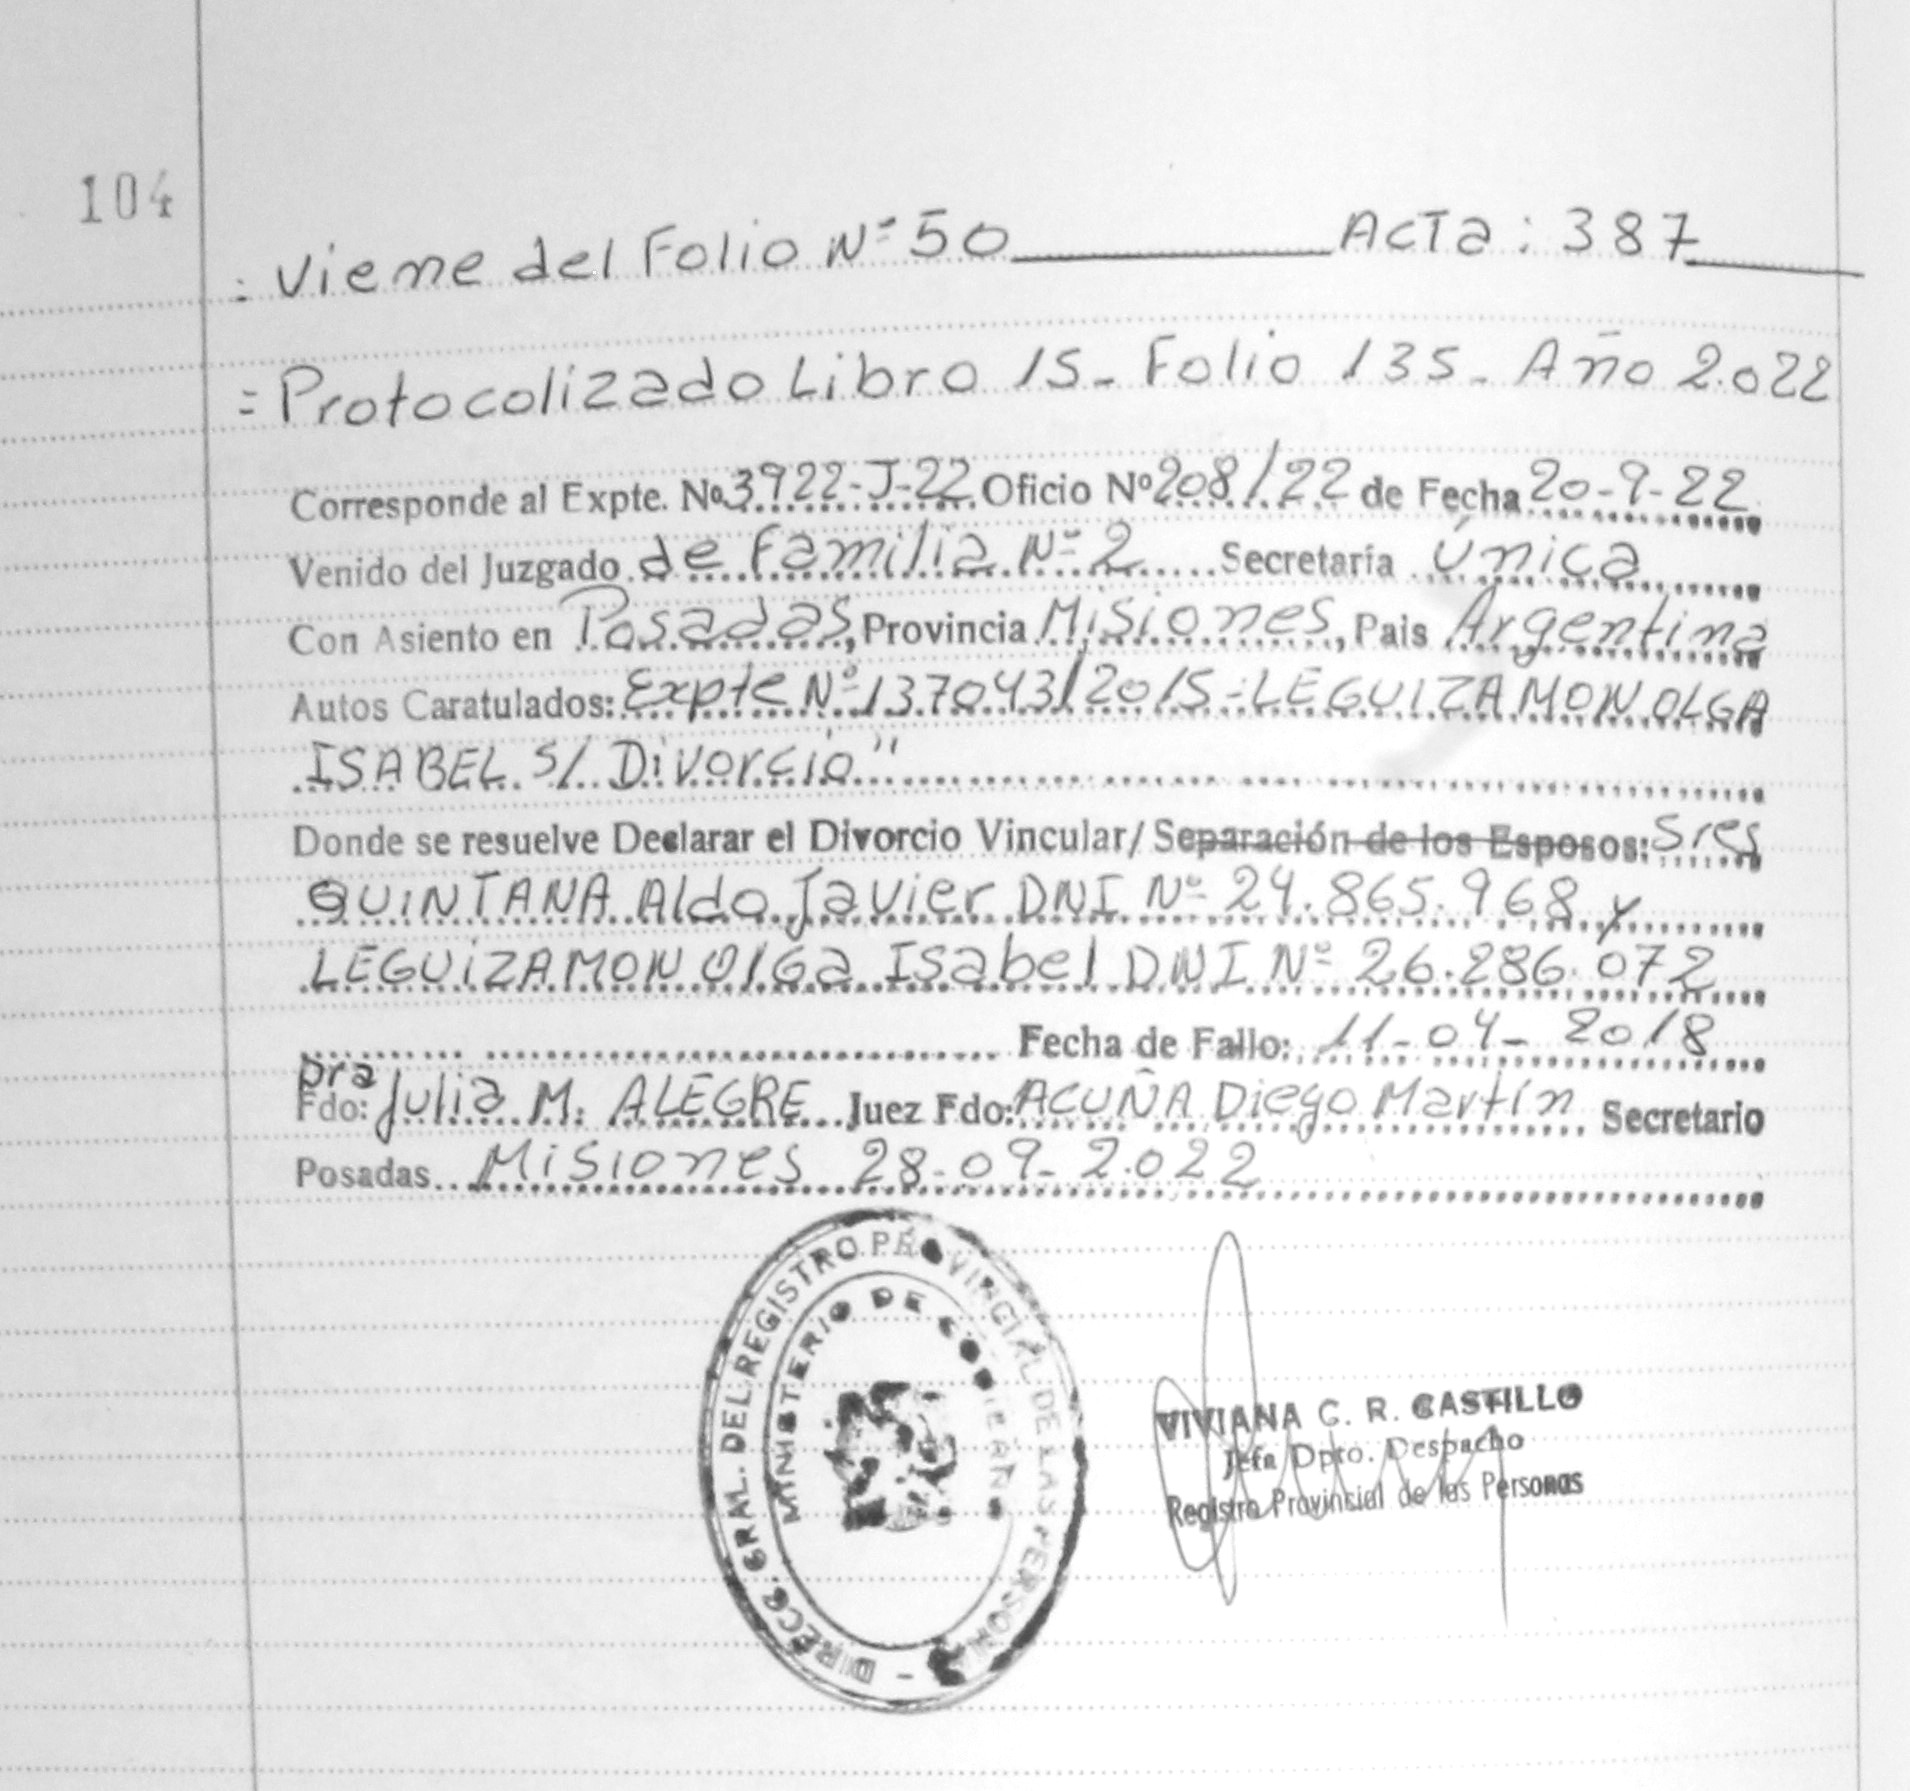 104
= Viene del Folio Nº 50 Acta: 387
= Protocolizado Libro 15 - Folio 135 - Año 2.022
Corresponde al Expte. Nº 3922-J-22 Oficio Nº 208/22 de Fecha 20-9-22
Venido del Juzgado de Familia Nº 2 Secretaría Única
Con Asiento en Posadas, Provincia Misiones, Pais Argentina
Autos Caratulados: Expte Nº 137043/2015-LEGUIZAMON OLGA
ISABEL S/ Divorcio"
Donde se resuelve Declarar el Divorcio Vincular/ Separación de los Esposos: Sres
QUINTANA Aldo Javier DNI Nº 24.865.968 y
LEGUIZAMON OlGa Isabel DNI Nº 26.286.072
Fecha de Fallo: 11-04-2018
Dra
Fdo: Julia M. ALEGRE Juez Fdo: ACUÑA Diego Martín Secretario
Posadas Misiones 28-09-2.022
DIRECC. GRAL. DEL REGISTRO PROVINCIAL DE LAS PERSONAS
MINISTERIO DE GOBIERNO
VIVIANA C. R. CASTILLO
Jefa Dpto. Despacho
Registro Provincial de las Personas